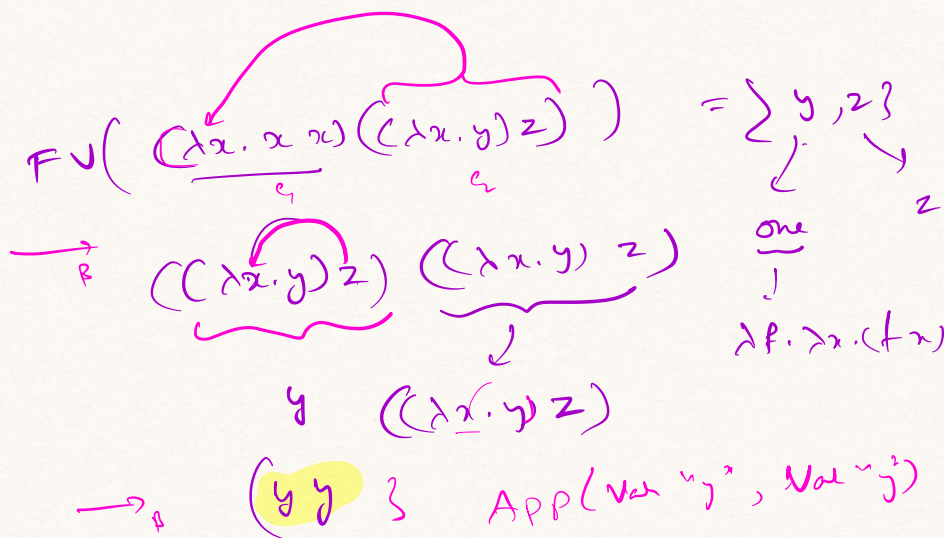 FV((λx. x x)((λx. y) z)) = {y, z}
e₁ e₂
one z
→β ((λx. y) z) ((λx. y) z)
λf. λx. (f x)
y ((λx. y) z)
→β (y y } App(Var "y", Var "y")